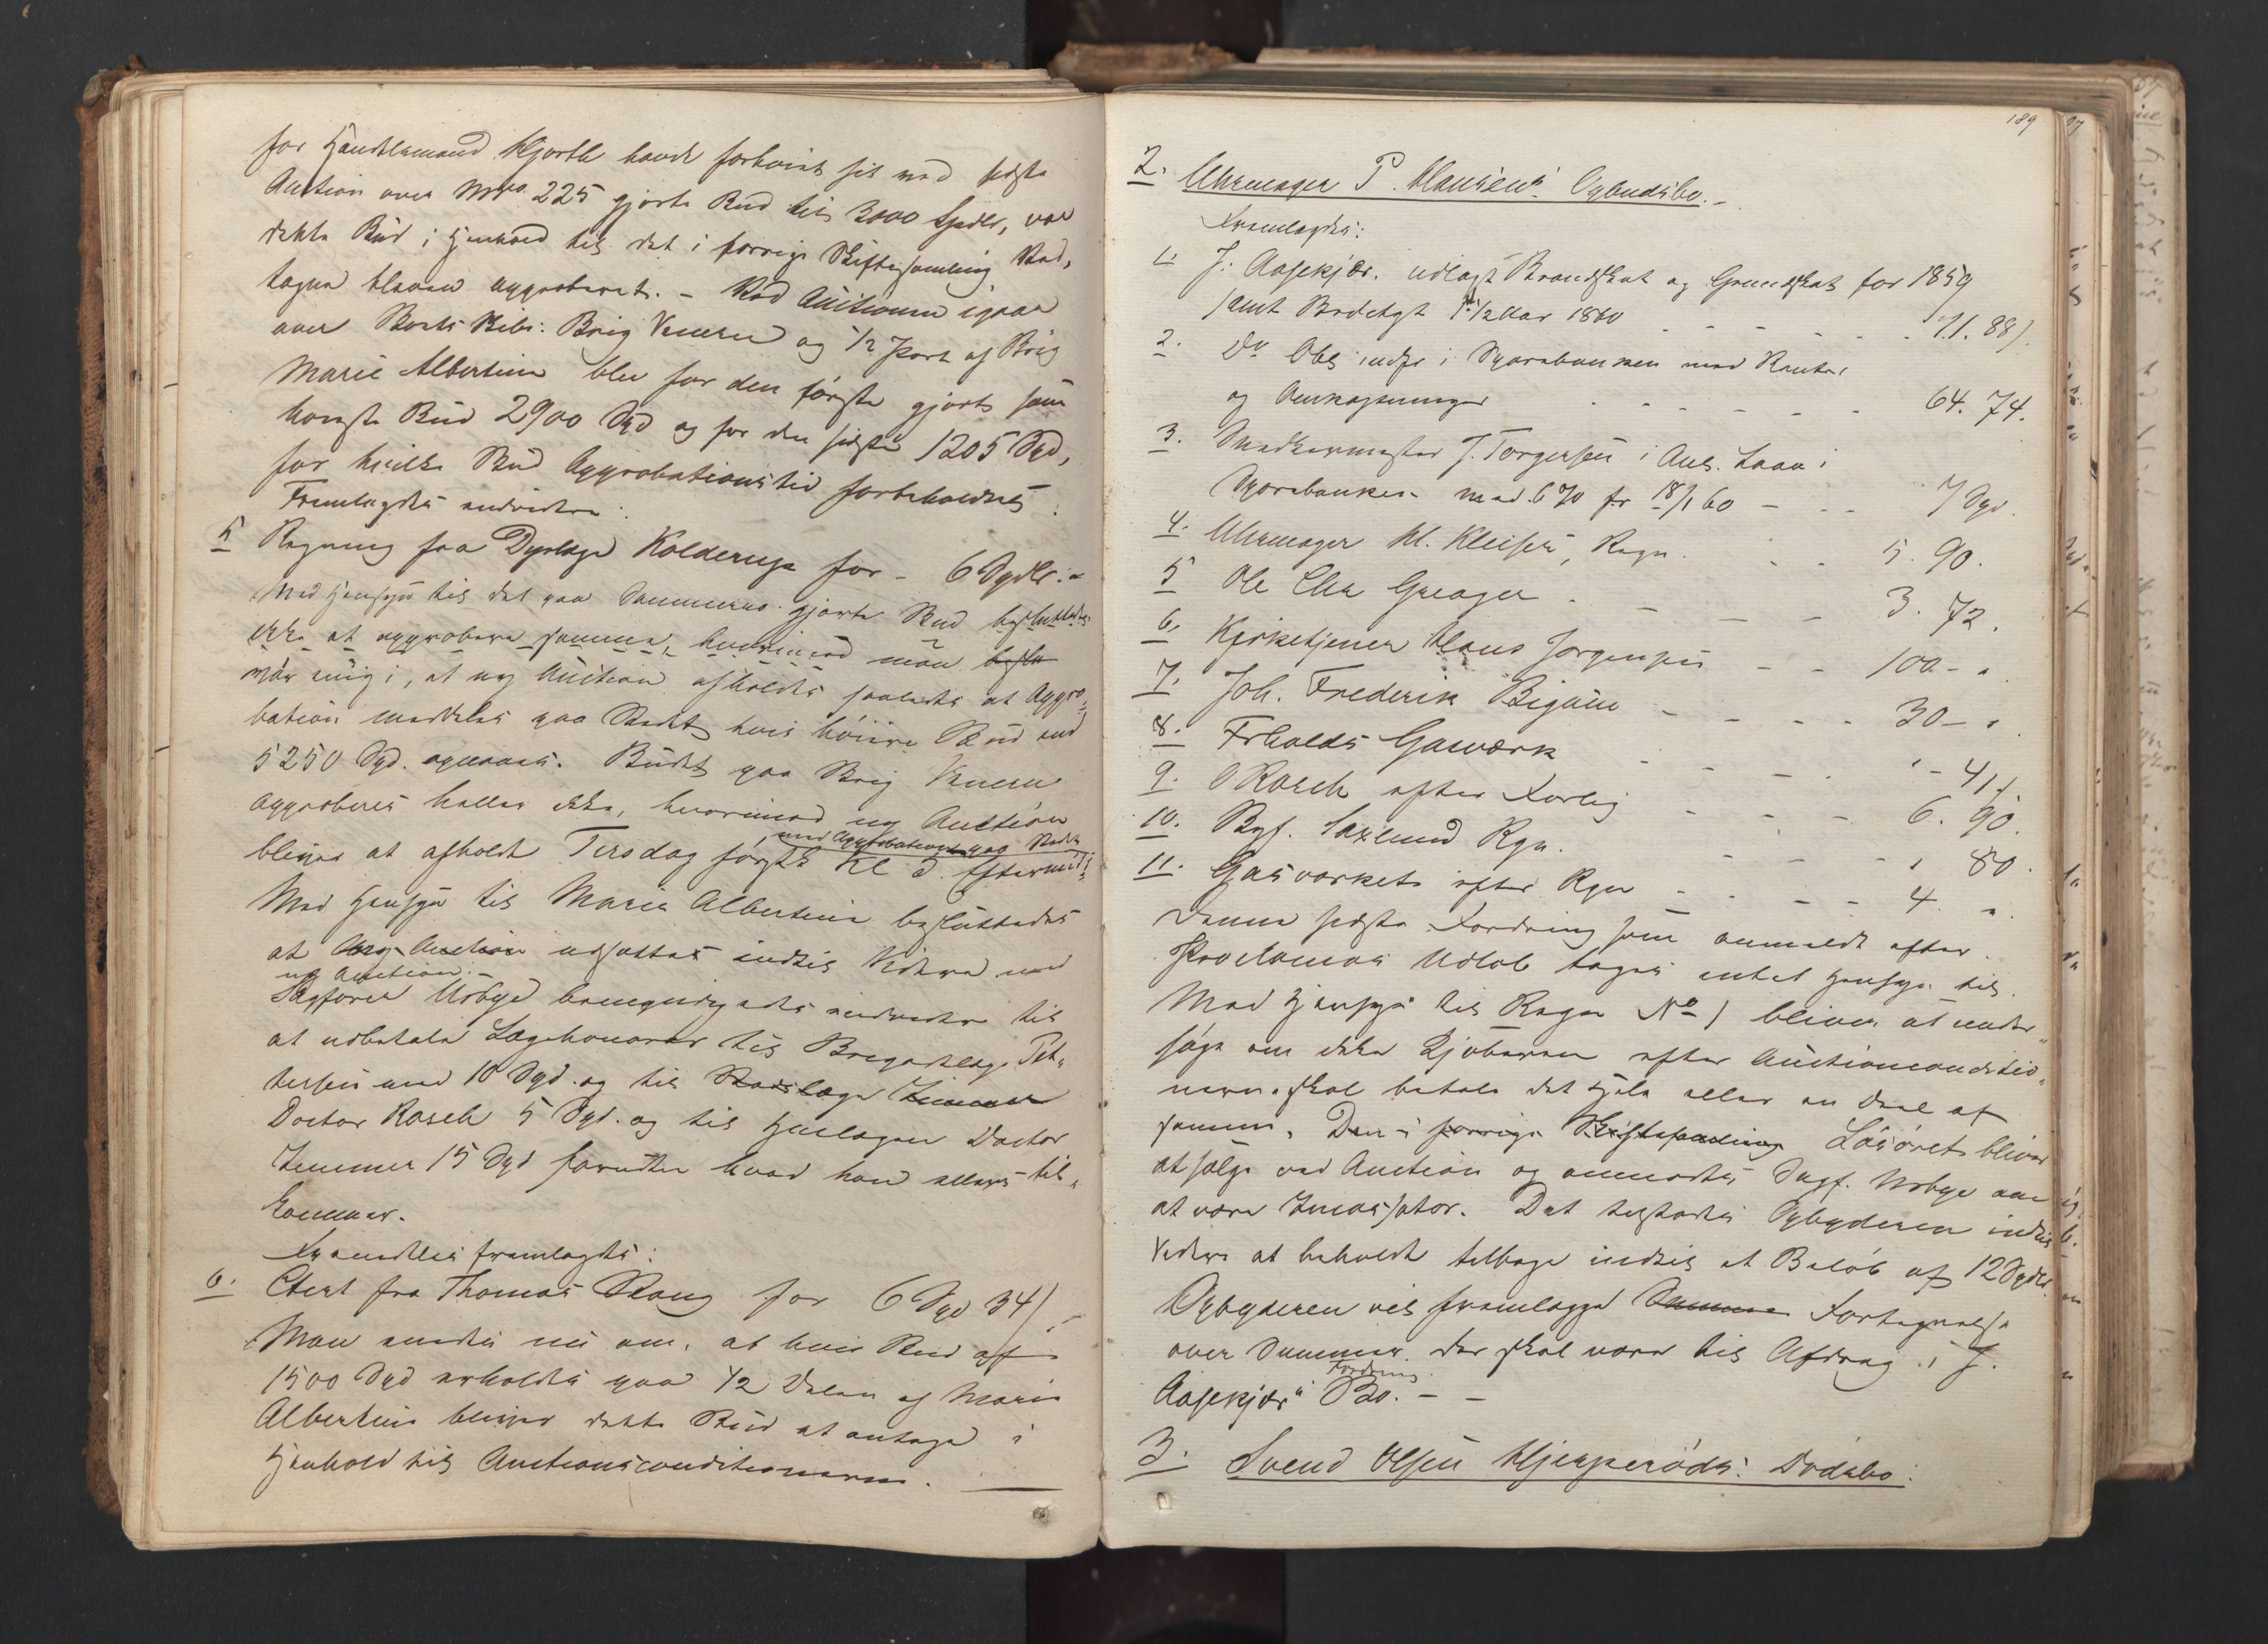 for Handelsmand Kjorth havde forhøiet sit ved sidste
Auction over Mno. 225 gjorte Bud til 3000 Spdlr, var
dette Bud i Henhold til det i forrige Skiftesamling Ved-
tagne bleven approberet. – Ved Auctionen igaar
over Boets Skibe: Brig Venern og 1/2 Part af Brig
Marie Albertine blev for den første gjort som
høieste Bud 2900 Spd og for den sidste 1205 Spd,
for hvilke Bud Approbationstid forbeholdtes.
Fremlagdes endvidere:
5 Regning fra Dyrlæge Kolderup for – 6 Spdlr. „
Med Hensyn til det paa gjorte Bud besluttedes
ikke at approbere samme, hvorimod man
var enig i, at ny Auction afholdes saaledes at Appro-
bation meddeles paa Stedet hvis høiere Bud end
5250 Spd. opnaaes. Budet paa Brig Venern
approberes heller ikke, hvorimod ny Auction
med Approbation paa Stedet
bliver at afholde Tirsdag første Kl 3. Eftermid.
Med Hensyn til Marie Albertine besluttedes
at ny Auction udsættes indtil Videre med
ny Auction. –
Sagfører Urbye bemyndigedes endvidere til
at udbetale Lægehonorar til Brigadelæge Pet-
tersen med 10 Spd. og til Stadslæge
Doctor Rasch 5 Spd. og til Huslægen Doctor
Zemmer 15 Spd foruden hvad han ellers til-
kommer.
fremlagdes:
6. Citert fra Thomas Stang for 6 Spd 34 /. –
Man enedes nu om, at hvis Bud af
1500 Spd erholdes paa 1/2 Delen af Marie
Albertine bliver dette Bud at antage i
Henhold til Auctionsconditionerne.
189
2. Uhrmager P. Hansens Opbudsbo. –
Fremlagdes:
1. J. Aasekjær. udlagt Brandskat og Grundskat for 1859
samt 1ste 1/2 Aar 1860 – – – – – 71. 88 /.
2. Do Obl. indfr i Sparebanken med Renter
og Omkostninger – – – – – 64. 74.
3. Snedkermester J. Torgersen i Anl. Laan i
Sparebanken med 6 % fr 18/1 60 – – – 7 Spd.
4. Uhrmager H. Kleisen, Regn. – – 5. 90.
5 Ole Chr Greager – – – 3. 72.
6. Kirketjener Hans Jørgensen – – 100 – „
7. Joh. Frederik Bigum – – – – 30 – „
8. Frhalds Gasværk – – – – „ – 41 /.
9. O Rasch efter Forlig – – – – 6. 90.
10. Bgf. Saxlund Rgn. – – – – „ 80.
11. Gasværket efter Rgn – – – – 4. „
Denne sidste Fordring som anmeldt efter
Proclamas Udløb tages intet Hensyn til.
Med Hensyn til Regn No 1 bliver at under-
søge om ikke Kjøberen efter Auctionconditio-
nerne skal betale det Hele eller en Deel af
samme. Den i forrige Skiftesamling Løsøret bliver
at sælge ved Auction og anmodes Sagf. Urbye om
at være Incassator. Det tilstodes Opbyderen indtil
Videre at beholde tilbage indtil et Beløb af 12 Spdlr.
Opbyderen vil fremlægge Fortegnelse
over Summer der skal være til Afdrag i J.
Fordring
Aasekjærs Bo. – –
3. Svend Olsen Hjerperøds Dødsbo: